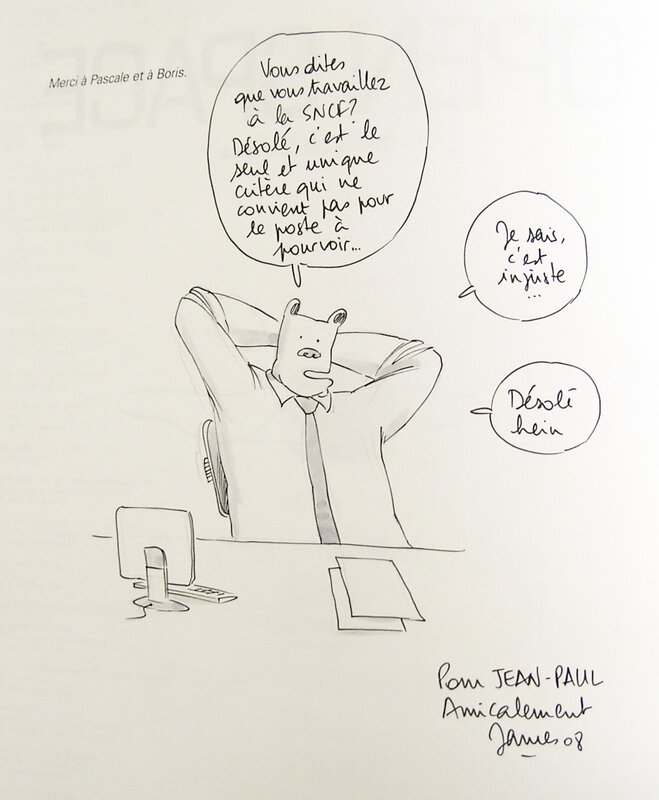 Merci à Pascale et à Boris.
Vous dites
que vous travaillez
à la SNCF?
Désolé, c'est le
seul et unique
critère qui ne
convient pas pour
le poste à
pourvoir...
Je sais,
c'est
injuste
...
Désolé
hein
Pour JEAN-PAUL
Amicalement
James 08